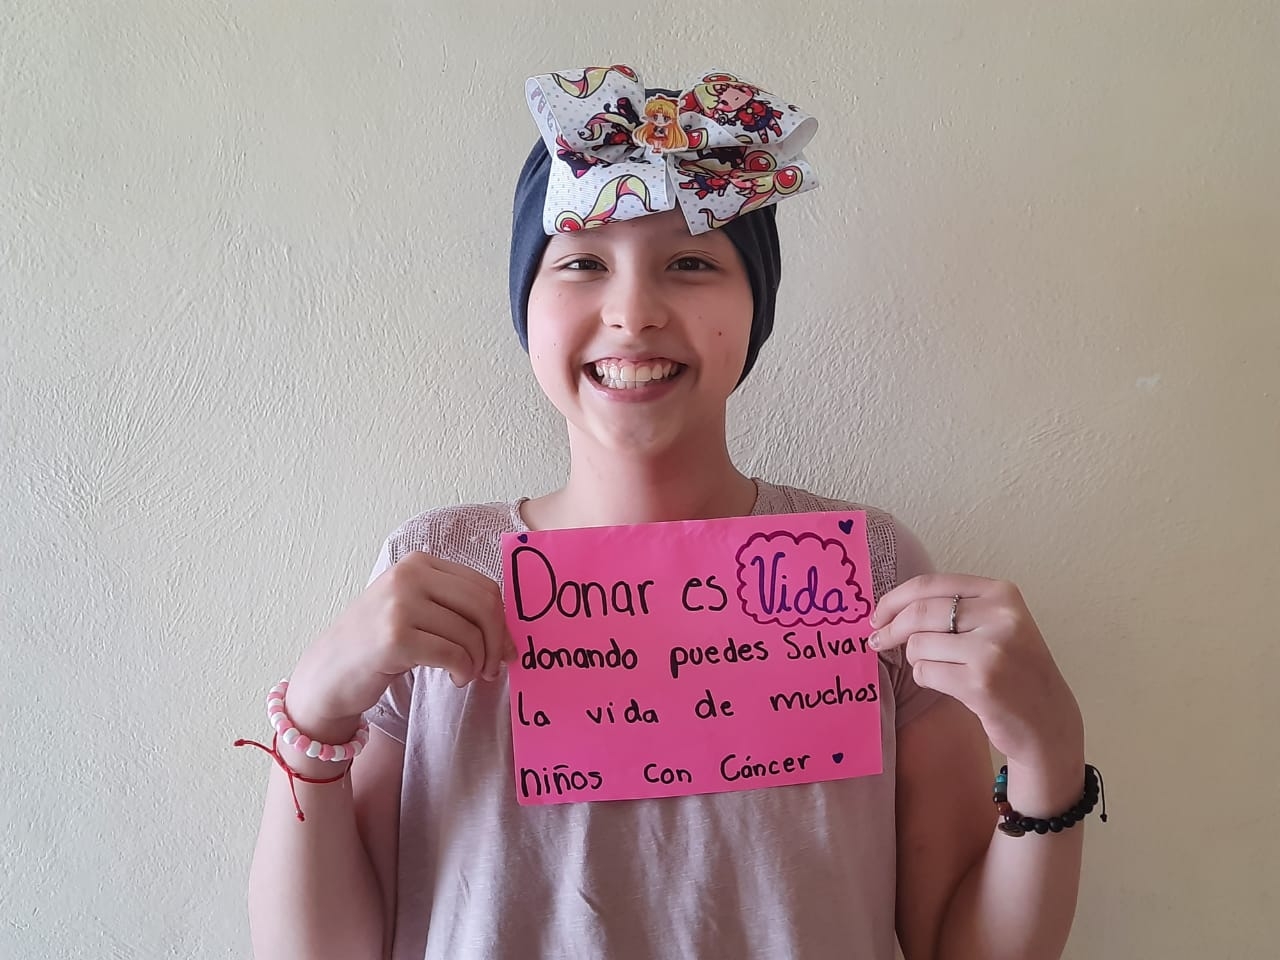 Donar es Vida,
donando puedes Salvar
la vida de muchos
niños con Cáncer